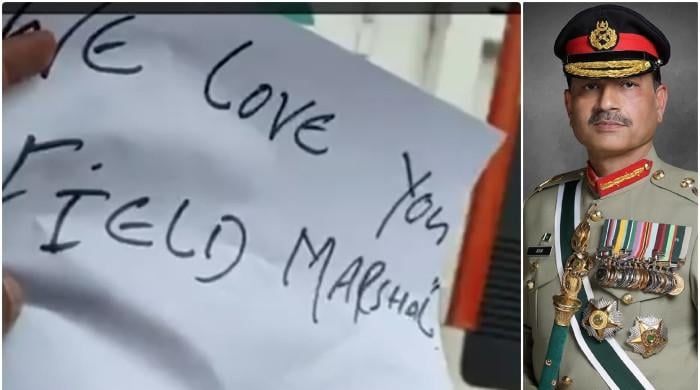 WE LOVE
YOU
FIELD MARSHAL